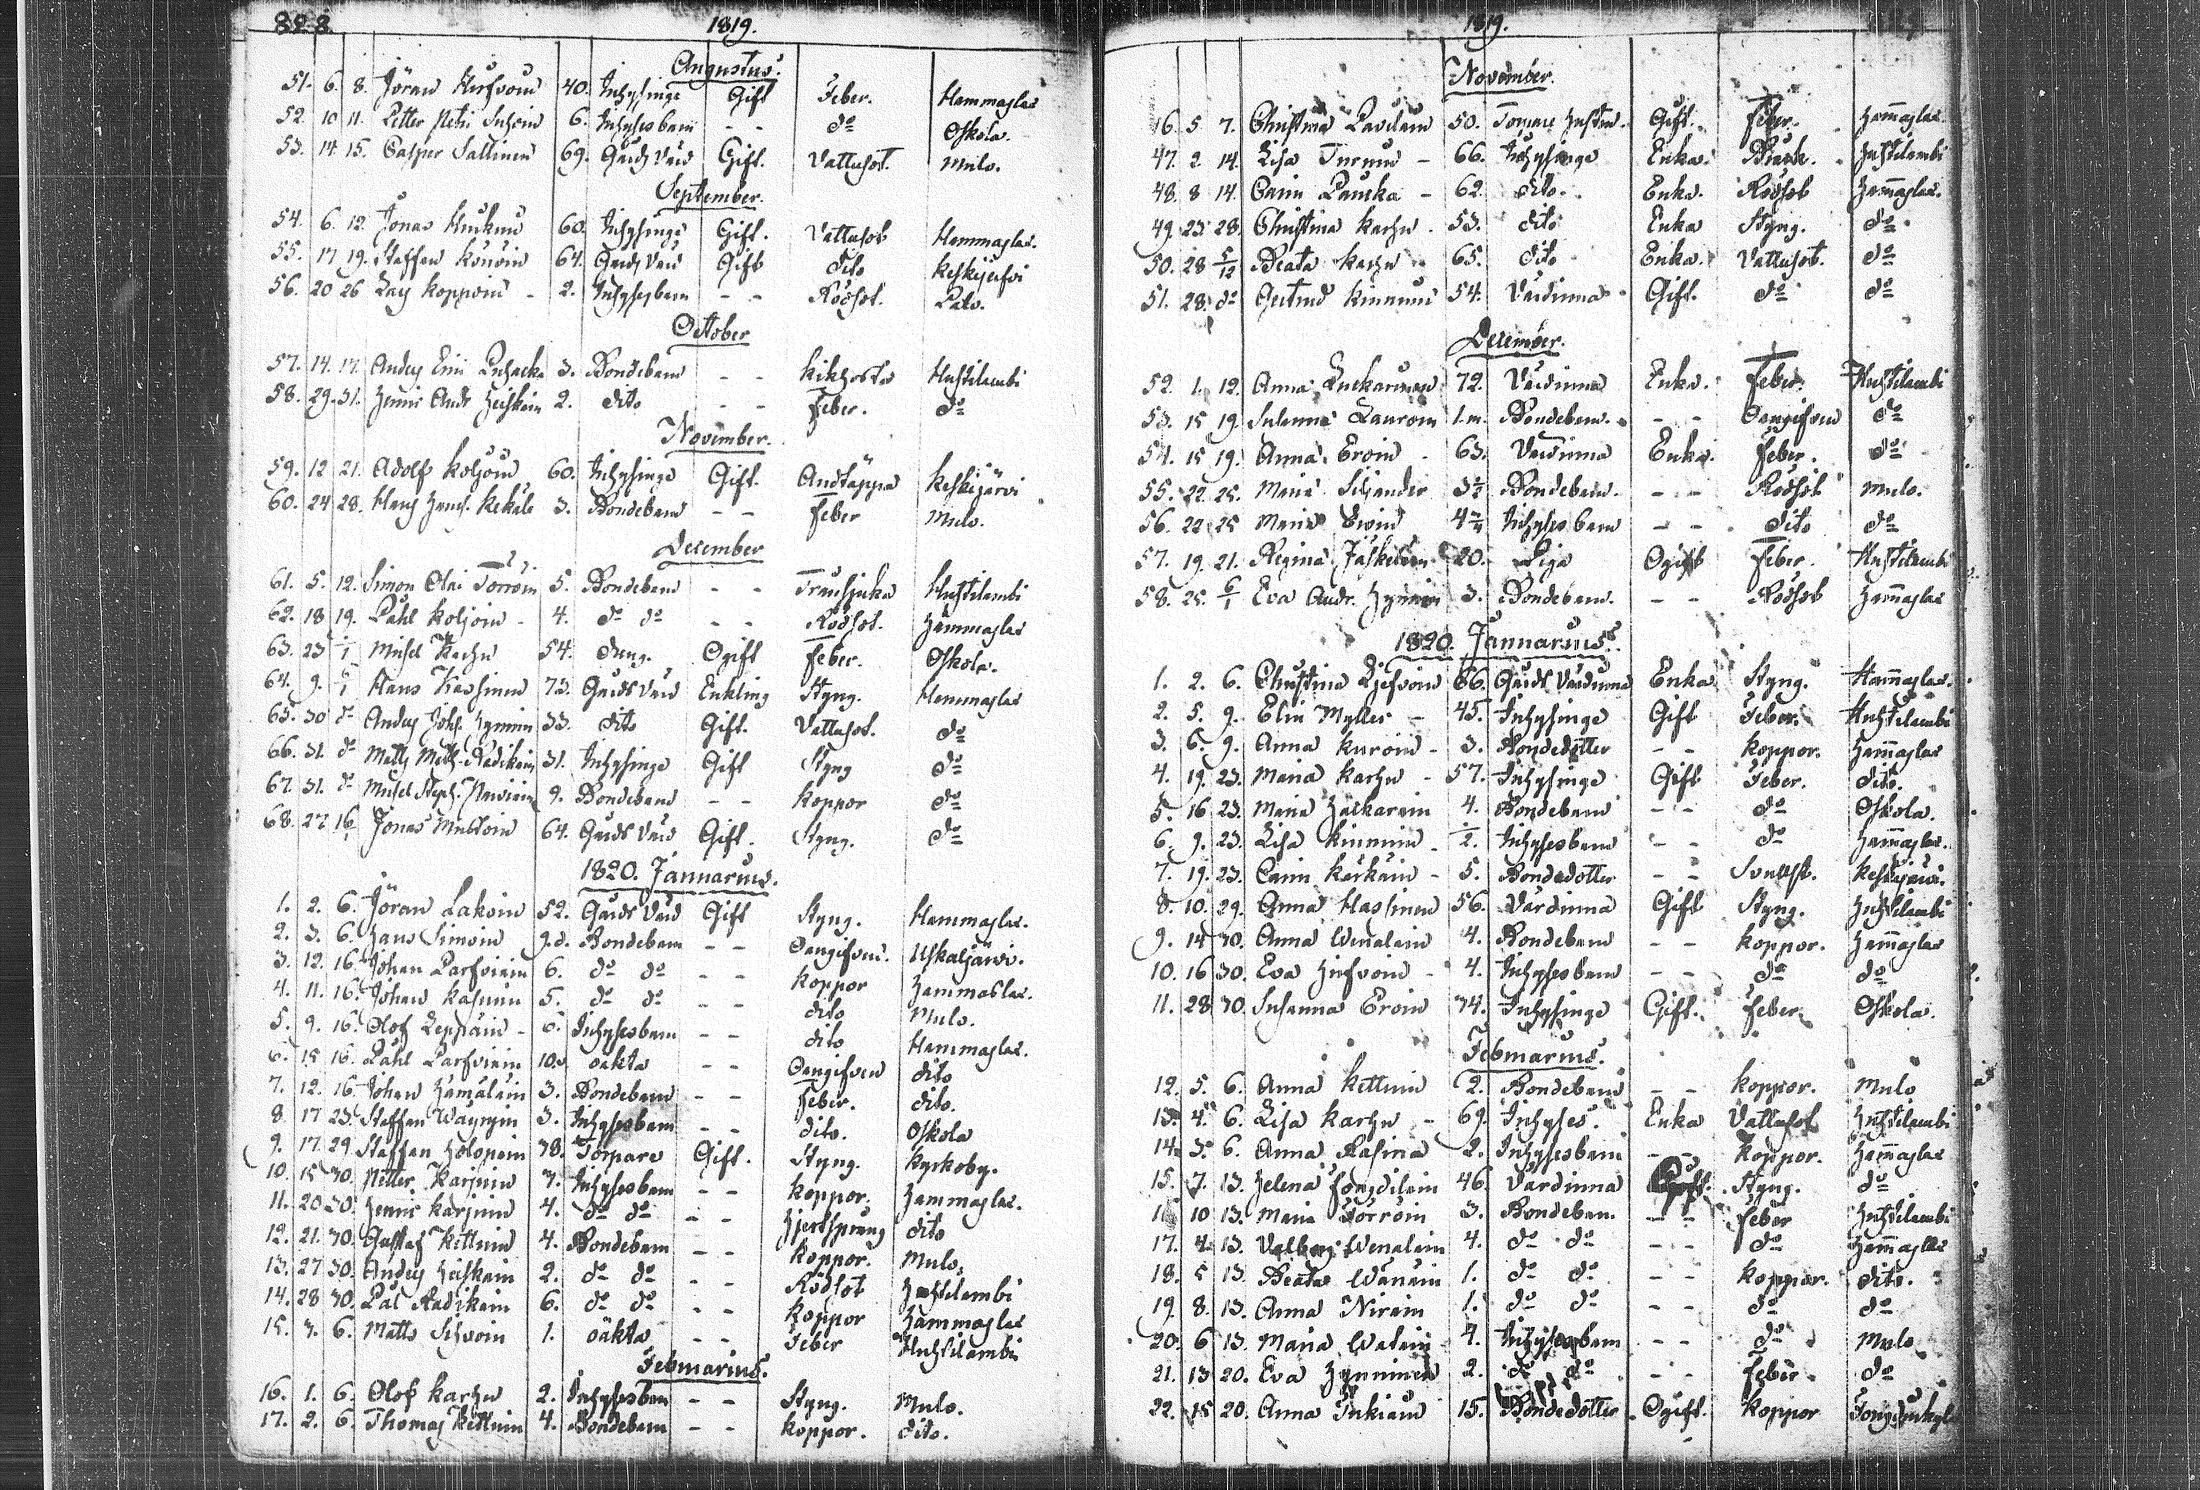 828
1819.
Augustus.
51. 6. 8. Jöran 40. Inhysinge Gift Feber. Hammaslax
52. 10 11. Petter Petri 6. Inhyses barn - - do Oskola.
53. 14. 15. Casper Sallinen 69. Gårds Värd Gift. Vattusot. Mulo.
September.
54. 6. 12. Jonas 60. Inhysinge Gift. Vattusot Hammaslax.
55. 17 19. Staffan 64. Gårds Värd Gift dito Keskijerfvi
56. 20 26 Lars Koppoin - 2. Inhysesbarn - - Rödsot. Dito.
October
57. 14. 17. Anders 3. Bondebarn - - Kikhosta Huhtilambi
58. 29. 31. Henric Andr. Heiskain 2. dito - - Feber. do
November.
59. 12 21. Adolf Koljoin 60. Inhysinge Gift. Andtäppa Keskijärvi
60. 24 28. Hans 3. Bondebarn - - Feber Mulo.
December
61. 5. 12. Simon Olai Torroin 5. Bondebarn - - Huhtilambi
62. 18 19. Påhl Koljoin - 4. do do - - Rödsot. Hammaslax
63. 23 1/1 Michel Karhu 54. dräng. Ogift Feber. Oskola.
64. 9. 6/1 Hans 73. Gårds Värd Enkling Styng. Hammaslax
65. 30 do Anders Joh. Hyvnin 33. dito Gift. Vattusot. do
66. 31. do Matts Matts. Radikain 31. Inhysinge Gift Styng do
67. 31. do Michel Steph. 9. Bondebarn - - Koppor do
68. 27. 16/1 Jonas Mustoin 64. Gårds Värd Gift. Styng. do
1820. Januarius.
1. 2. 6. Jöran Laksin 52. Gårds Värd Gift Styng. Hammaslax.
2. 3. 6. Hans Simoin 9. d. Bondebarn - - Oangifven. Uskaljärvi.
3. 12. 16. Johan Parfviain 6. do do - - Koppor Hammaslax.
4. 11. 16. Johan Kasurin 5. do do - - dito Mulo.
5. 9. 16. Olof Leppäin - 6. Inhysesbarn - - dito Hammaslax.
6. 15 16. Påhl Parfviain 10.d oäkta - - Oangifven dito
7. 12. 16. Johan Hämäläin 3. Bondebarn - - Feber. dito.
8. 17 23. Staffan Wäyryin 3. Inhysesbarn - - dito. Oskola
9. 17. 29 Staffan Holopain 38. Torpare Gift. Styng. Kyrkoby.
10. 15 30. Petter Karjnin 3. Inhysesbarn - - Koppor. Hammaslax.
11. 20 30. Henric Karjnin 4. do do - - Hjertsprång dito
12. 21. 30. Gustaf Kettuin 4. Bondebarn - - Koppor. Mulo.
13. 27 30. Anders Heiskain 2. do do - - Rödsot Huhtilambi
14. 28 30. Pål Radikain 6. do do - - Koppor Hammaslax
15. 3. 6. Matts Sihvoin 1. oäkta - - Feber Huhtilambi
Februarius.
16. 1. 6. Olof Karhu 2. Inhysesbarn - - Styng. Mulo.
17. 2. 6. Thomas Kettuin 4. Bondebarn - - Koppor. dito.
1819.
November.
46. 5 7. Christina 50. Torpare Gift. Feber. Hammaslax.
47. 2 14. Lisa Turnin - 66. Inhysinge Enka. Bråck. Huhtilambi
48. 8 14. Carin - 62. dito. Enka. Rödsot Hammaslax.
49. 23 28. Christina Karhu - 53. dito Enka Styng. do
50. 28 5/12 Beata Karhu 65. dito Enka. Vattusot. do
51. 28. do Gertrud Kinnuin 54. Värdinna Gift. do do
December.
52. 1. 12. Anna 72. Värdinna Enka. Feber. Huhtilambi
53. 15 19. Susanna Lauroin 1.m. Bondebarn. - - Oangifven do
54. 15 19. Anna Eroin - 63. Värdinna Enka. Feber. do
55. 22 25. Maria Siliander 3½ Bondebarn. - - Rödsot Mulo.
56. 22 25 Maria Eroin Inhyses barn - - dito do
57. 19. 21. Regina Jäskeläin 20. Piga Ogift Feber. Huhtilambi
58. 25. 6/1 Eva Andr. 3. Bondebarn. - - Rödsot Hammaslax
1820. Januarius.
1. 2. 6. Christina 66. Gårds Värdinna Enka Styng. Hammaslax.
2. 5. 9. Elin Myller - 45. Inhysinge Gift Feber. Huhtilambi
3. 6. 9. Anna Kuroin - 3. Bondedotter - - Koppor. Hammaslax
4. 19. 23. Maria Karhu - 57. Inhysinge Gift Feber. dito.
5. 16 23. Maria 4. Bondebarn - - do Oskola.
6. 9. 23. Lisa Kinnuin - ½. Inhysesbarn - - do Hammaslax.
7. 19. 23. Carin Kärkäin - 5. Bondedotter - - Keskijärvi.
8. 10. 29. Anna Hassinen 56. Värdinna Gift Styng. Huhtilambi
9. 14 30. Anna Wenäläin 4. Bondebarn - - Koppor. Hammaslax
10. 16 30. Eva Hirfvoin - 4. Inhysesbarn - - do do
11. 28 30. Susanna Eroin 34. Inhysinge Gift. Feber Oskola.
Februarius.
12. 5. 6. Anna Kettuin 2. Bondebarn - - Koppor. Mulo
13. 4. 6. Lisa Karhu - 69. Inhyses. Enka Vattusot Huhtilambi
14. 3. 6. Anna Rasina 2. Inhysesbarn - - Koppor. Hammaslax
15. 7. 13. Helena 46. Värdinna Gift. Styng. do
10 13. Maria Torroin 3. Bondebarn. - - Feber Huhtilambi
17. 4. 13. Valborg Wenäläin 4. do do - - do Hammaslax
18. 5 13. Beata Wänäin 1. do do - - Koppor. dito.
19. 8. 13. Anna Nirain 1. do do - - do do
20. 6 13. Maria 4. Inhysesbarn - - do Mulo
21. 13 20. Eva Hynninen 2. do do - - Feber do
22. 15 20. Anna Inkiäin 15. Bondedotter Ogift. Koppor